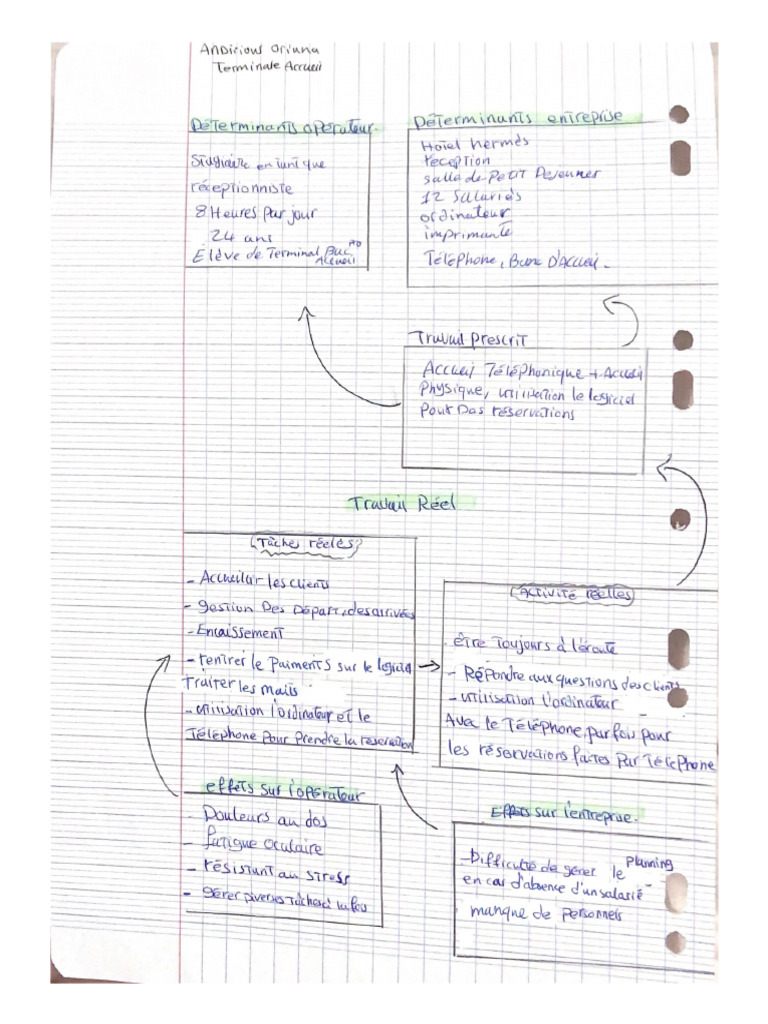 Andicious Oriana
Terminale Accueil
Déterminants opérateur.
Stagiaire en tant que
réceptionniste
8 Heures par jour
24 ans
Élève de Terminal Bac PRO
Accueil
Déterminants entreprise
Hotel hermès
réception
salle de Petit Dejeuner
12 Salariés
ordinateur
imprimante
Téléphone, Banc D'Accueil.
Travail prescrit
Accueil Téléphonique + Accueil
Physique, utilisation le logiciel
Pour Das réservations
Travail Réel
Tâches réelés
- Accueillir les clients
- gestion Des Départ, des arrivées
- Encaissement
- rentrer le Paiments sur le logiciel
Traiter les mails
- utilisation l'ordinateur et le
Téléphone pour Prendre la reservation
Activité réelles
. être toujours à l'écoute
- Répondre aux questions des clients
- utilisation l'ordinateur
Avec le Téléphone, parfois pour
les réservations faites par Téléphone
effets sur l'opérateur
- Douleurs au dos
- fatigue oculaire
- résistant au stress
- gérer diverses tâches à la fois
Effets sur l'entreprise.
- Difficulté de gérer le planning
en cas d'absence d'un salarié -
manque de personnels